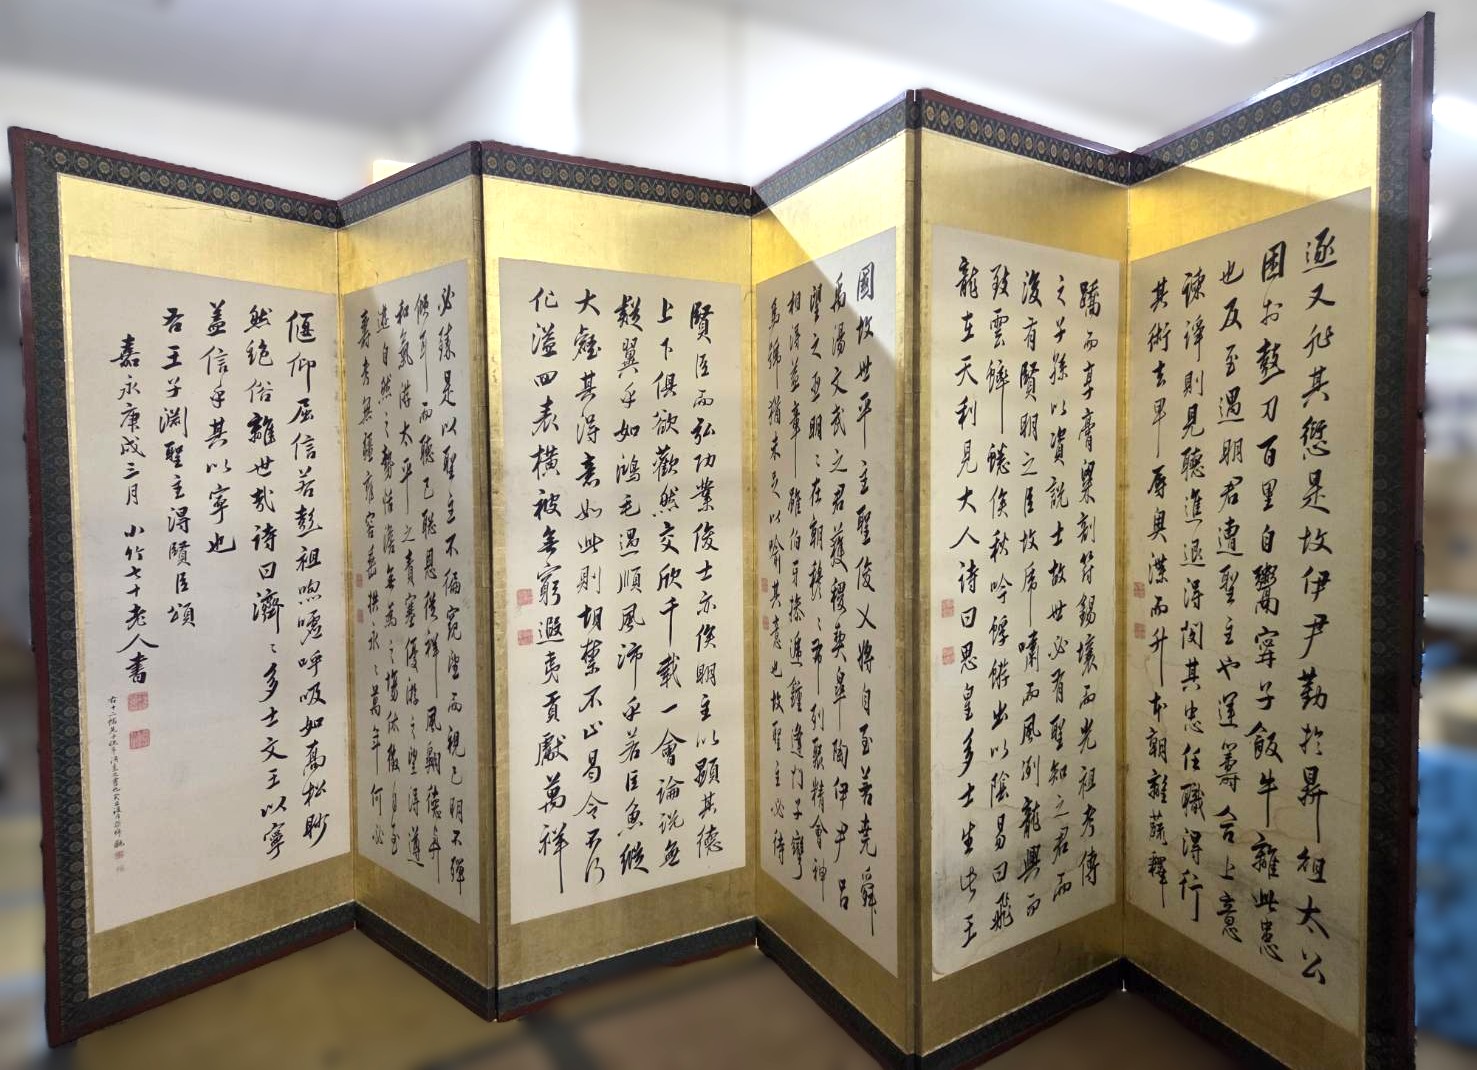 逐又非其愆是故伊尹勤於鼎俎太公
困於鼓刀百里自鬻甯子飯牛離此患
也及至遇明君遭聖主也運籌合上意
諫諍則見聽進退得関其忠任職得行
其術去卑辱奥渫而升本朝離蔬釋
蹻而享膏粱剖符錫壤而光祖考傳
之子孫以資説士故世必有聖知之君而
後有賢明之臣故虎嘯而風冽龍興而
致雲蟀蟋俟秋吟蜉蝣出以陰易曰飛
龍在天利見大人詩曰思皇多士生此王
國故世平主聖俊乂将自至若堯舜
禹湯文武之君獲稷契皐陶伊尹呂
望之臣明々在朝穆々布列聚精會神
相得益章雖伯牙操遞鐘逢門子彎
烏號猶未足以喻其意也故聖主必待
賢臣而弘功業俊士亦俟明主以顯其德
上下俱欲歡然交欣千載一會論説無
疑翼乎如鴻毛遇順風沛乎若巨魚縱
大壑其得意如此則胡禁不止曷令不行
化溢四表橫被無窮遐夷貢獻萬祥
必臻是以聖主不徧窺望而視已明不殫
傾耳而聽已聰恩從祥風翺德與
和氣游太平之責塞優游之望得遵
遊自然之勢恬澹無為之場休徵自至
壽考無疆雍容垂拱永々萬年何必
偃仰屈信若彭祖呴噓呼吸如喬松眇
然絶俗離世哉詩曰濟々多士文王以寧
蓋信乎其以寧也
右王子淵聖主得賢臣頌
嘉永庚戌三月 小竹七十老人書